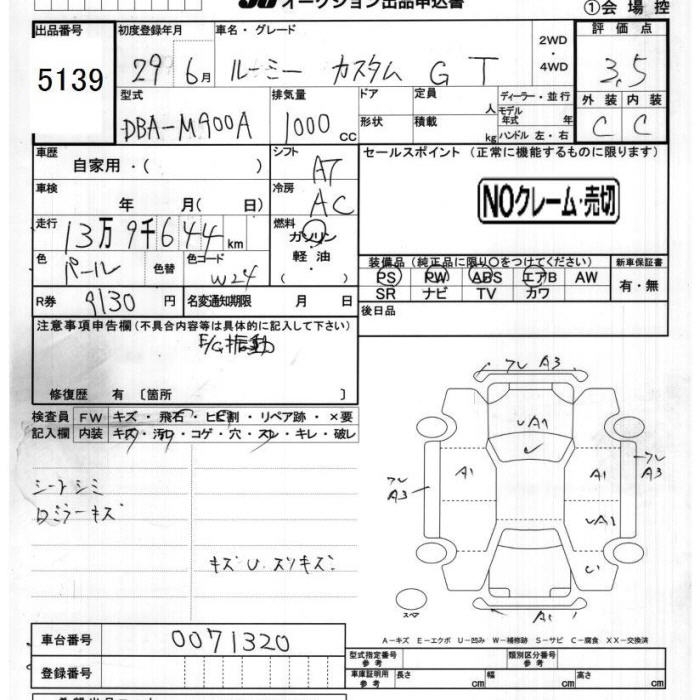 オークション出品申込書
①会場控
出品番号 初度登録年月 車名・グレード 2WD・4WD 評価点
5139 29年 6月 ルーミー カスタム G T 3.5
型式 排気量 ドア 定員 人 ディーラー・並行 外装 内装
DBA-M900A 1000 CC 形状 積載 kg モデル年式 年 ハンドル 左・右 C C
車歴 自家用・( ) シフト AT セールスポイント (正常に機能するものに限ります)
車検 年 月( 日) 冷房 AC NOクレーム・売切
走行 13万9千644km 燃料 ガソリン・軽油・( )
装備品 (純正品に限り○をつけてください) 新車保証書
色 パール 色替 色コード W24 PS PW ABS エアB AW 有・無
SR ナビ TV カワ
R券 9130円 名変通知期限 月 日 後日品
注意事項申告欄(不具合内容等は具体的に記入して下さい)
E/G振動
修復歴 有 〔箇所 〕
検査員 FW キズ・飛石・ヒビ割・リペア跡・×要
記入欄 内装 キズ・汚レ・コゲ・穴・スレ・キレ・破レ
シートシミ
Dミラーキズ
キズ U スリキズ
フレ A3
UA1
フレ A3
A1
A1
フレ A3
UA1
A1
スペア
A-キズ E-エクボ U-凹み W-補修跡 S-サビ C-腐食 XX-交換済
車台番号 0071320
型式指定番号 参考 類別区分番号 参考
登録番号 車庫証明用 参考 長さ cm 幅 cm 高さ cm